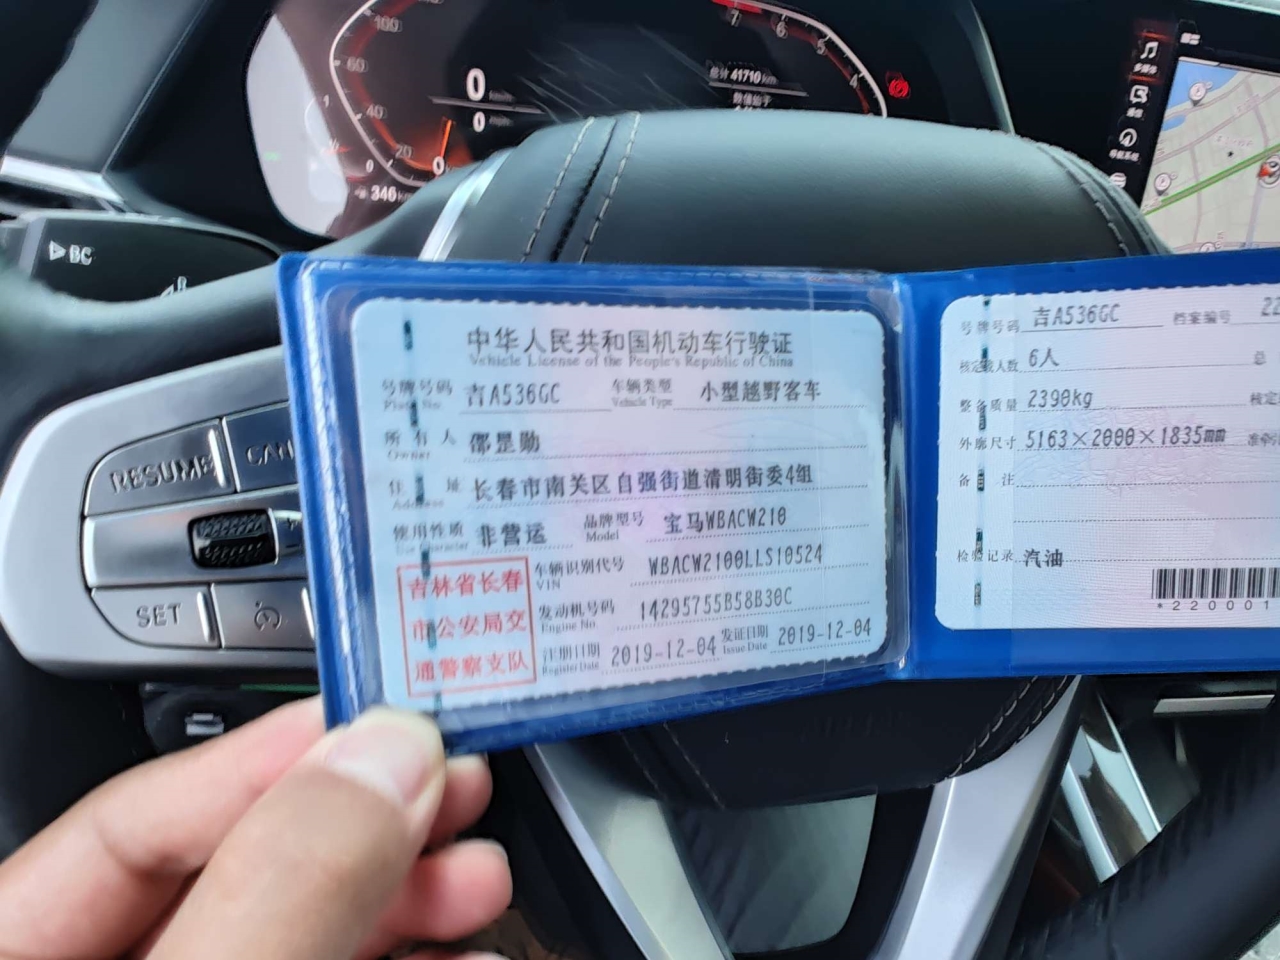 100
60
40
20
0
0 km/h
0 mph
346
总计 41710 km
7
6
5
4
多媒体
通信
导航系统
BC
RESUME
CAN
SET
中华人民共和国机动车行驶证
Vehicle License of the People's Republic of China
号牌号码 吉A536GC 车辆类型 小型越野客车
Plate No. Vehicle Type
所有人 邵罡勋
Owner
住址 长春市南关区自强街道清明街委4组
Address
使用性质 非营运 品牌型号 宝马WBACW210
Use Character Model
吉林省长春
市公安局交
通警察支队
车辆识别代号 WBACW2100LLS10524
VIN
发动机号码 14295755B58B30C
Engine No.
注册日期 2019-12-04 发证日期 2019-12-04
Register Date Issue Date
号牌号码 吉A536GC 档案编号 22
核定载人数 6人 总
整备质量 2390kg 核定
外廓尺寸 5163×2000×1835mm 准牵
备注
检验记录 汽油
*220001